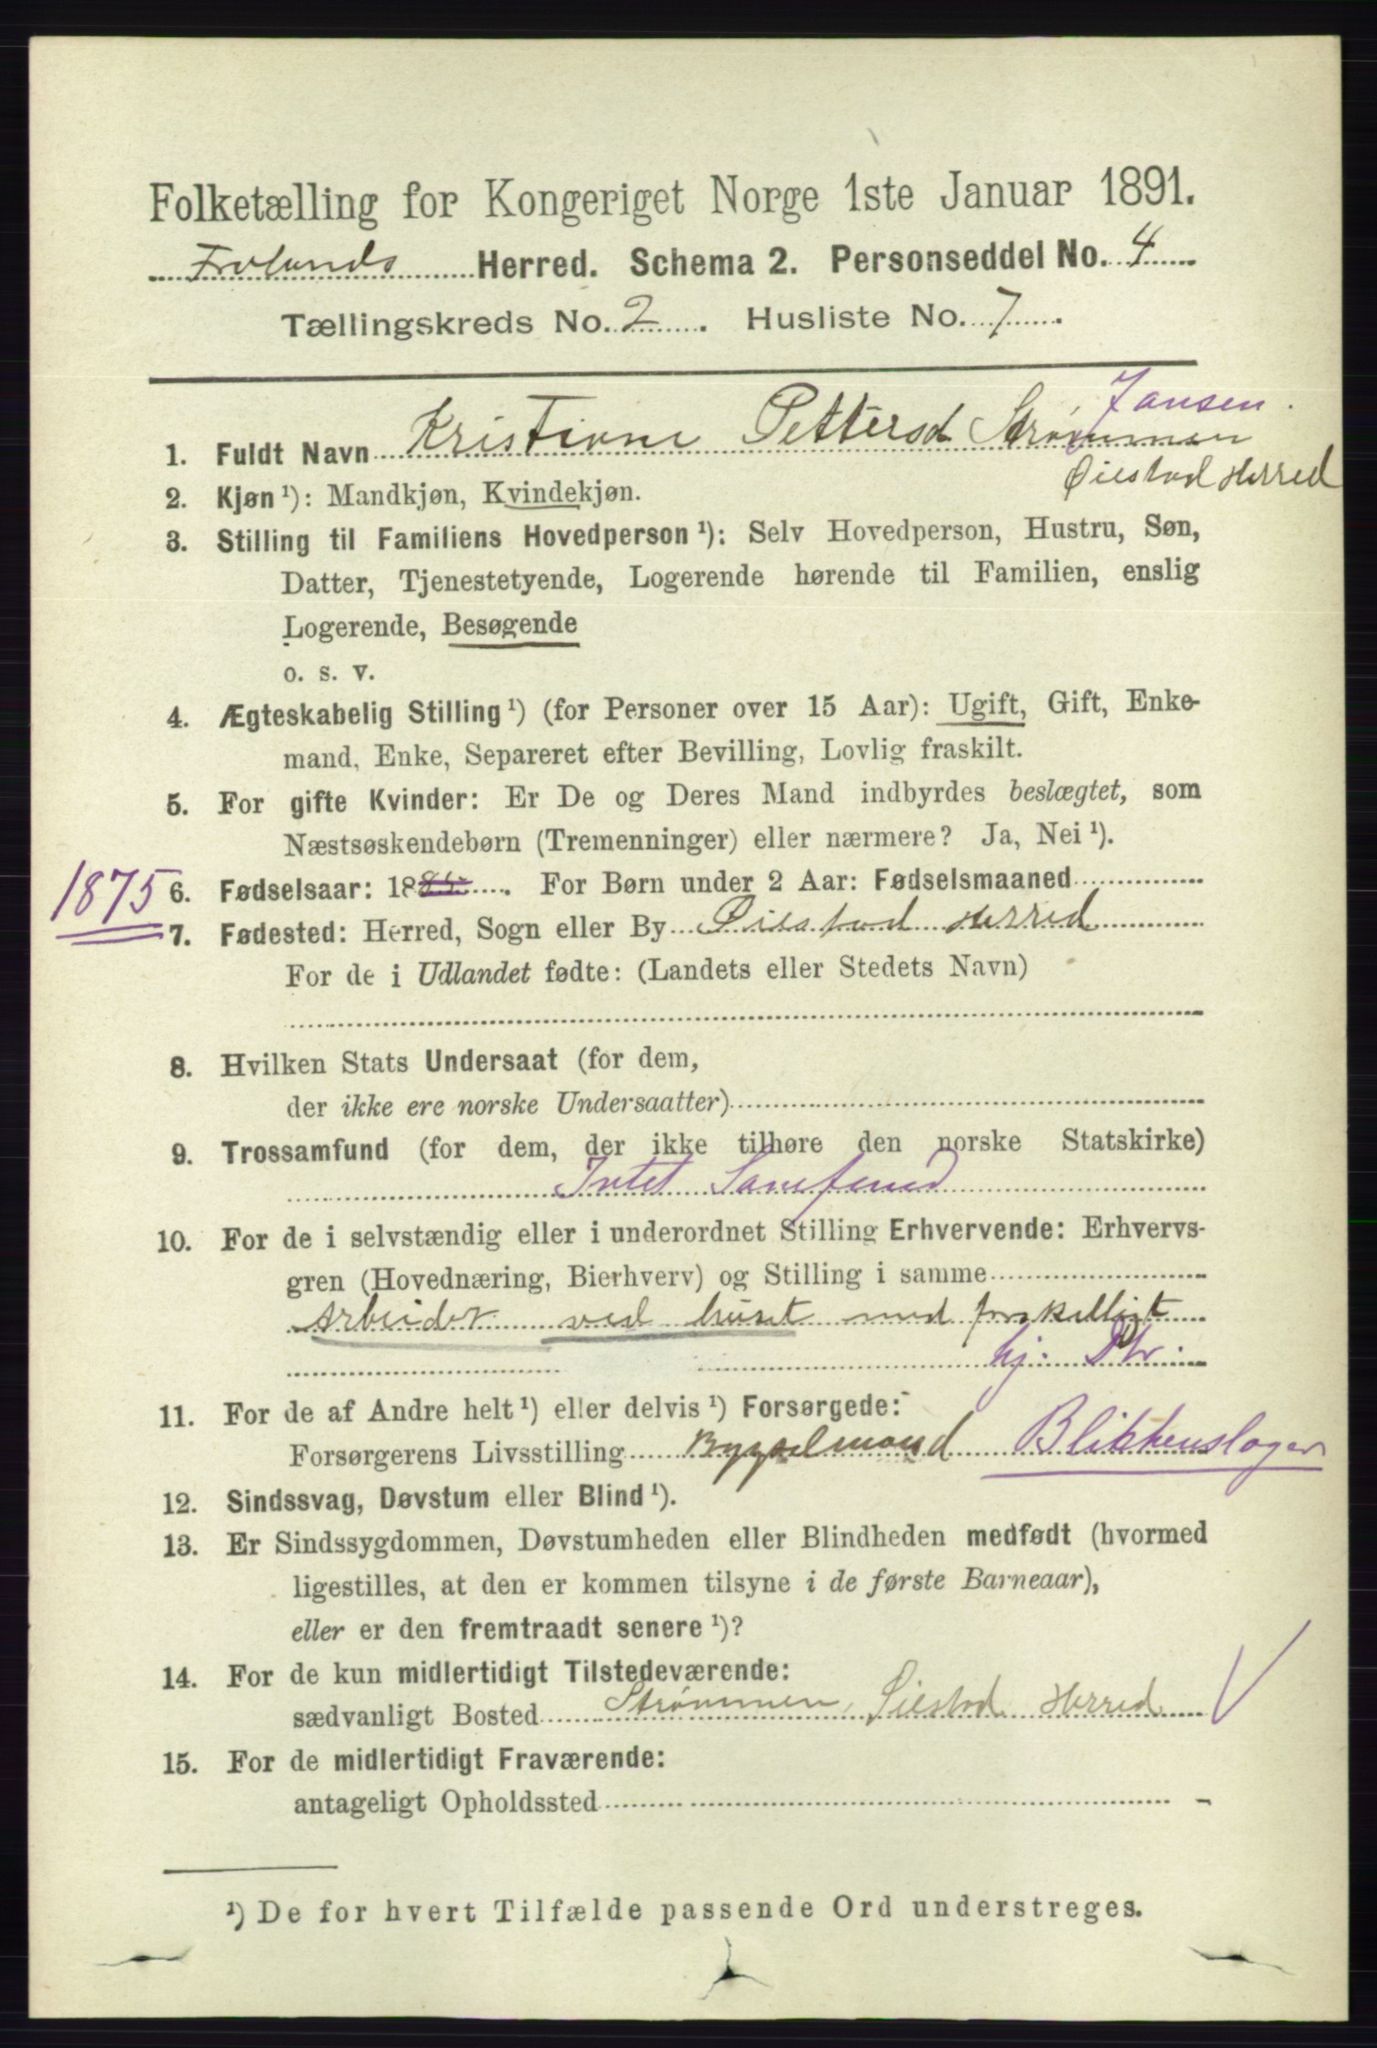 Folketælling for Kongeriget Norge 1ste Januar 1891.
Frolands Herred. Schema 2. Personseddel No. 4
Tællingskreds No. 2. Husliste No. 7.
Jansen.
1. Fuldt Navn Kristiane Pettersd Strømmen
Øiestad Herred
2. Kjøn ¹): Mandkjøn, Kvindekjøn.
3. Stilling til Familiens Hovedperson ¹): Selv Hovedperson, Hustru, Søn,
Datter, Tjenestetyende, Logerende hørende til Familien, enslig
Logerende, Besøgende
o. s. v.
4. Ægteskabelig Stilling ¹) (for Personer over 15 Aar): Ugift, Gift, Enke-
mand, Enke, Separeret efter Bevilling, Lovlig fraskilt.
5. For gifte Kvinder: Er De og Deres Mand indbyrdes beslægtet, som
Næstsøskendebørn (Tremenninger) eller nærmere? Ja, Nei ¹).
1875
6. Fødselsaar: 18. For Børn under 2 Aar: Fødselsmaaned
7. Fødested: Herred, Sogn eller By Øiestad Herred
For de i Udlandet fødte: (Landets eller Stedets Navn)
8. Hvilken Stats Undersaat (for dem,
der ikke ere norske Undersaatter)
9. Trossamfund (for dem, der ikke tilhøre den norske Statskirke)
Intet Samfund
10. For de i selvstændig eller i underordnet Stilling Erhvervende: Erhvervs-
gren (Hovednæring, Bierhverv) og Stilling i samme
Arbeider ved huset med forskelligt
hj. Dtr.
11. For de af Andre helt ¹) eller delvis ¹) Forsørgede:
Forsørgerens Livsstilling Bygselmand Blikkenslager
12. Sindssvag, Døvstum eller Blind ¹).
13. Er Sindssygdommen, Døvstumheden eller Blindheden medfødt (hvormed
ligestilles, at den er kommen tilsyne i de første Barneaar),
eller er den fremtraadt senere ¹)?
14. For de kun midlertidigt Tilstedeværende:
sædvanligt Bosted Strømmen, Øiestad Herred
15. For de midlertidigt Fraværende:
antageligt Opholdssted
¹) De for hvert Tilfælde passende Ord understreges.